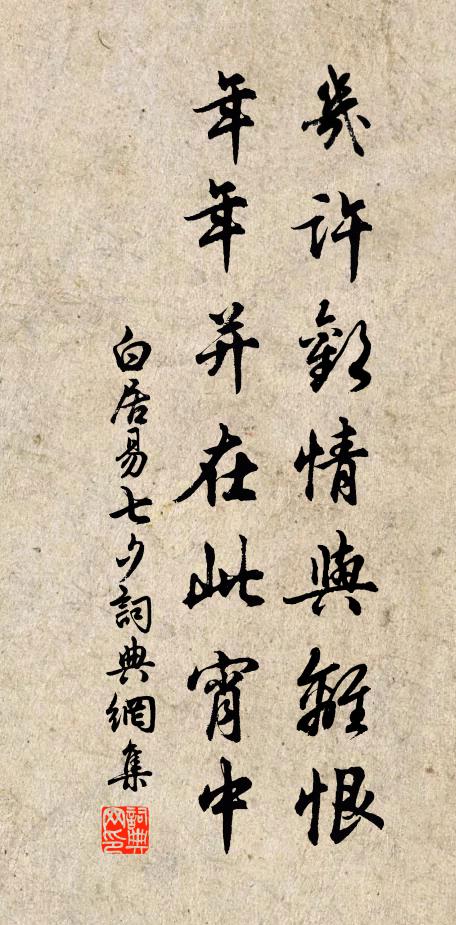 幾許歡情與離恨
年年并在此宵中
白居易七夕詞典網集
詞典網印